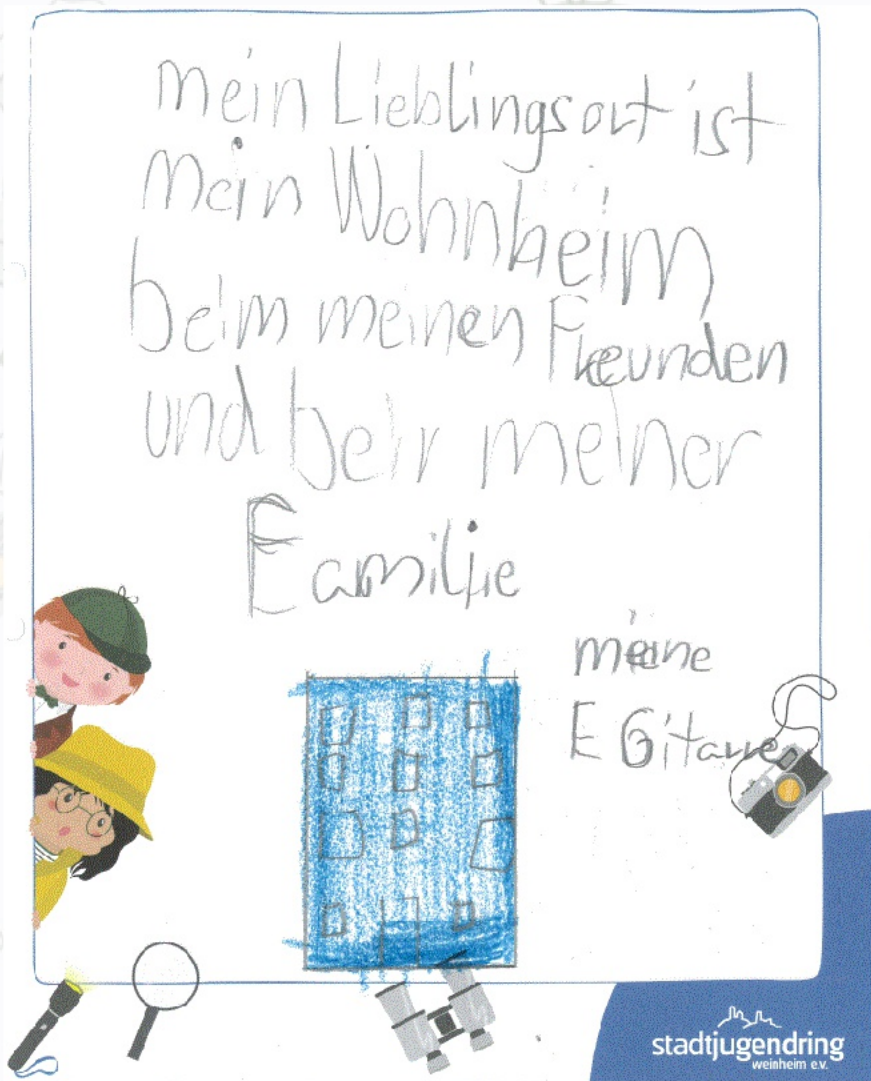 mein Lieblingsort ist
mein Wohnheim
beim meinen Freunden
und beir meiner
Familie
meine
E Gitarre
stadtjugendring
weinheim e.v.